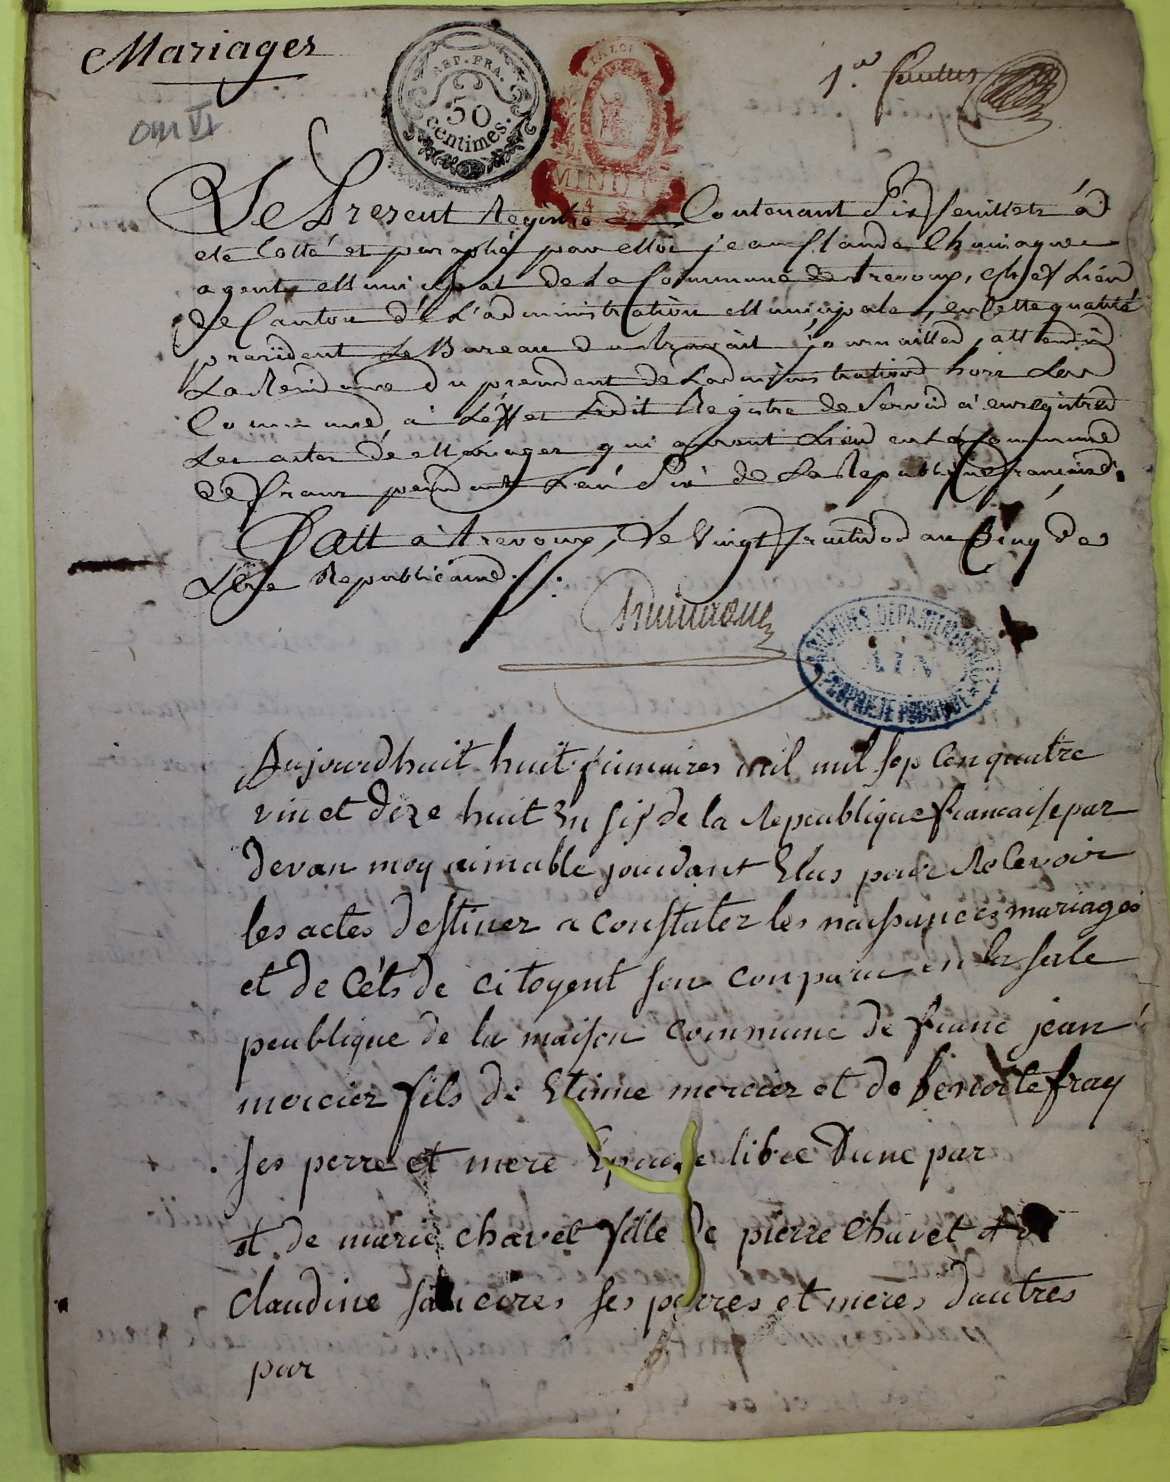 Mariages
an VI
REP. FRA.
50
centimes.
LA LOI
MINUTE
1.er feuillet
Le Present Registre Contenant Six feuillets à
eté Cotté et paraphé par Moi jean
agent Municipal de la Commune de trevoux, chef Lieu
de Canton de L'administration Municipale, en cette qualité
president Le Bureau
La Residence du president de Ladministration hors La
Commune, à L'effet Ledit Registre de Servir à enregistrer
Les actes de Mariages qui auront Lieu en La Commune
de frans pendant L'an Six de La Republique francaise.
Fait à trevoux, Le Vingt fructidor an Cinq de
L'Ere Republicaine.
ARCHIVES DEPARTEMENTALES
AIN
PROPRIETE PUBLIQUE
Aujourdhuit huit frimaires mil sep cen quatre
vin et dize huit En six de la Republique francaise par
devan moy aimable jourdant Elus pour Rolevoir
les actes destinez a constater les naissances mariages
et de Céts de citoyent son conparu en la salle
peublique de la maison commune de franc jean
mercier fils de Etinne mercier et de benoite fray
ses perre et mere Epouse libre Dune par
et de marie chavet fille de pierre Chavet et de
claudine ses perres et meres dautres
par